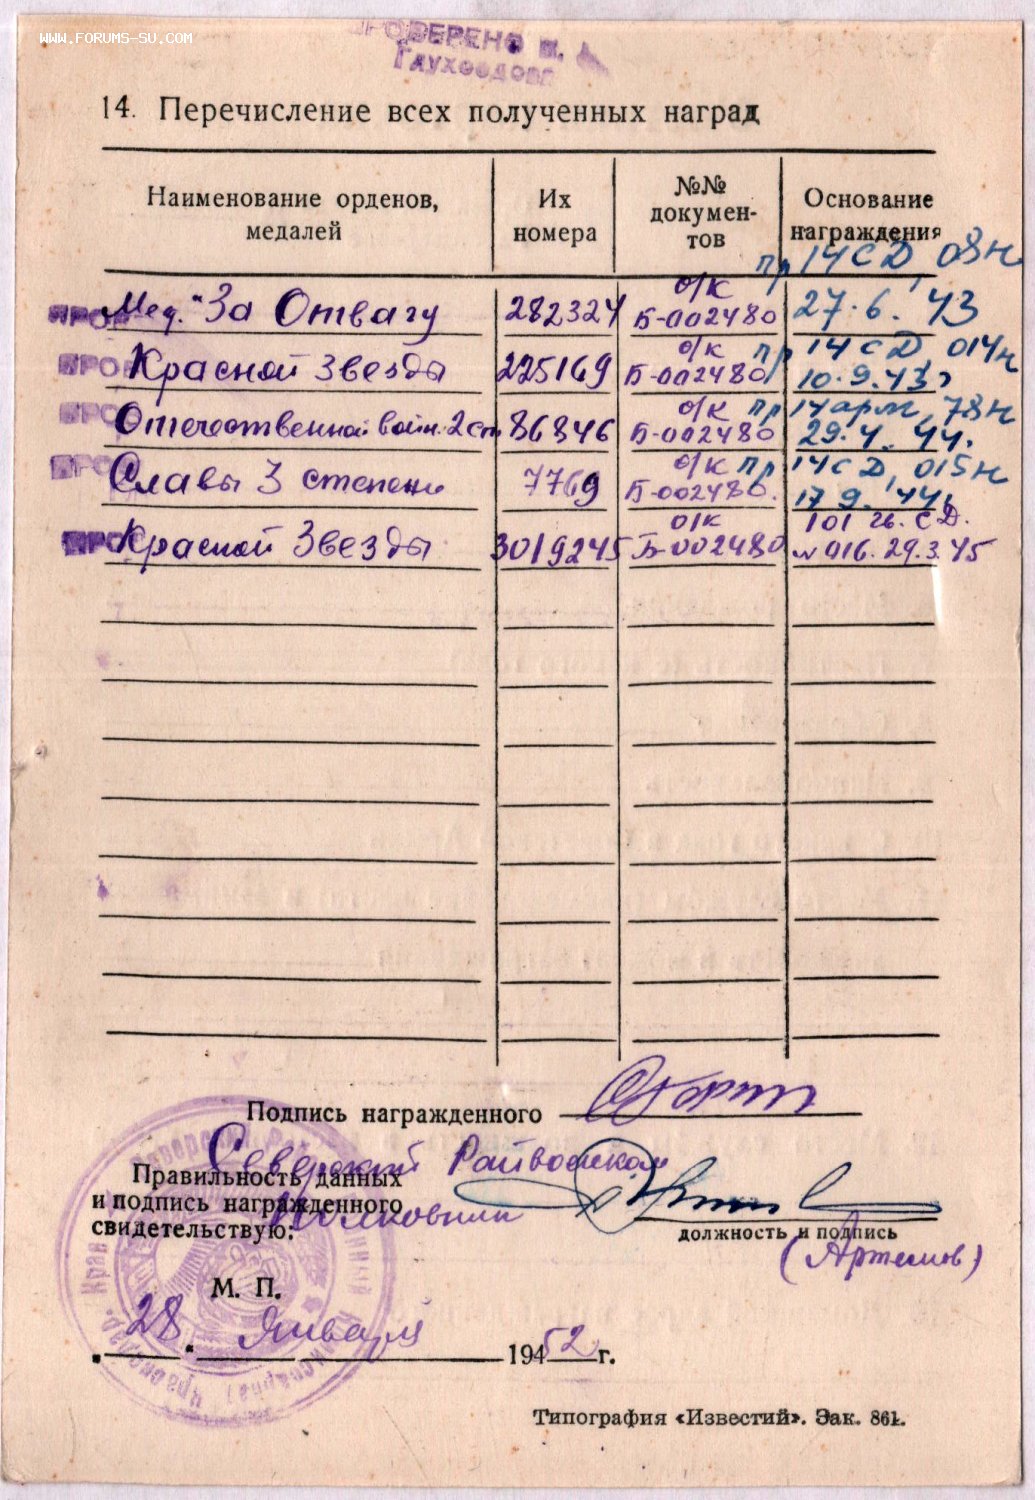 WWW.FORUMS-SU.COM
ПРОВЕРЕНО
14. Перечисление всех полученных наград
Наименование орденов, медалей
Их номера
№№ докумен-тов
Основание награждения
Мед. "За Отвагу 282324 о/к Б-002480 пр 14 СД, 08н 27.6.43
Красной Звезды 225169 о/к Б-002480 пр 14 СД, 014н 10.9.43
Отечественной войн. 2 ст 86846 о/к Б-002480 пр 14 арм, 78н 29.4.44.
Славы 3 степени 7769 о/к Б-002480. пр 14 СД, 015н 17.9.44
Красной Звезды 3019245 о/к Б-002480 101 гв. СД. № 016. 29.3.45
Подпись награжденного
Северский Райвоенком
Правильность данных
и подпись награжденного
Полковник
свидетельствую:
должность и подпись
(Артемов)
М. П.
"28" Января 1952 г.
Типография «Известий». Зак. 861.